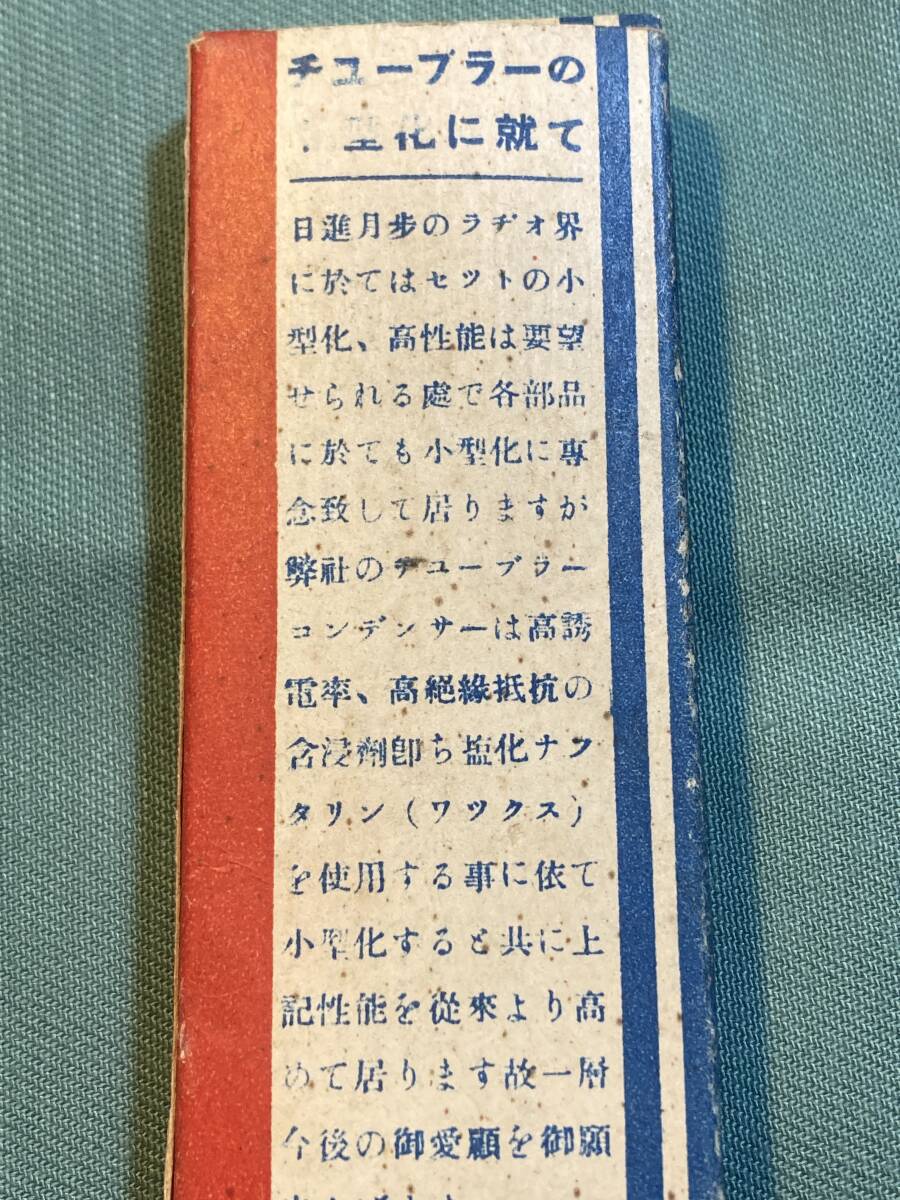 チユーブラーの
型化に就て
日進月歩のラヂオ界
に於てはセツトの小
型化、高性能は要望
せられる處で各部品
に於ても小型化に專
念致して居りますが
弊社のチユーブラー
コンデンサーは高誘
電率、高絶緣抵抗の
含浸劑卽ち塩化ナフ
タリン(ワツクス)
を使用する事に依て
小型化すると共に上
記性能を從來より高
めて居ります故一層
今後の御愛顧を御願